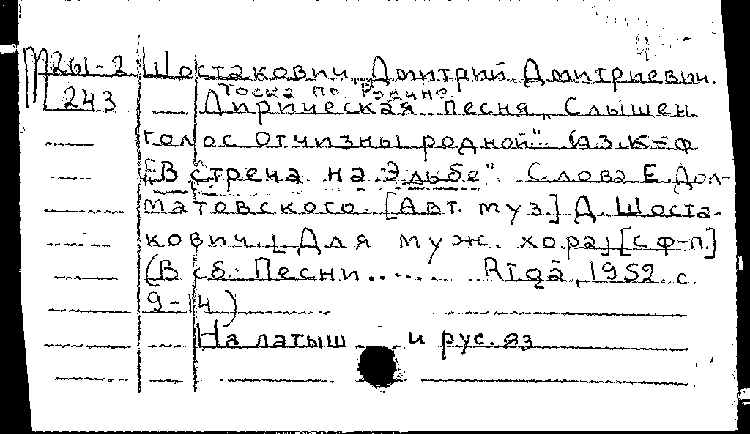 М261-2 Шостакович, Дмитрий Дмитриевич.
Тоска по Родине
243 Лирическая песня „Слышен
голос Отчизны родной" из к-ф
„Встреча на Эльбе". Слова Е. Дол-
матовского. [Авт. муз.] Д. Шоста-
кович. [Для муж. хора] [с ф-п.]
(В сб: Песни...... Rīgā, 1952 с.
9-14)
На латыш и рус. яз